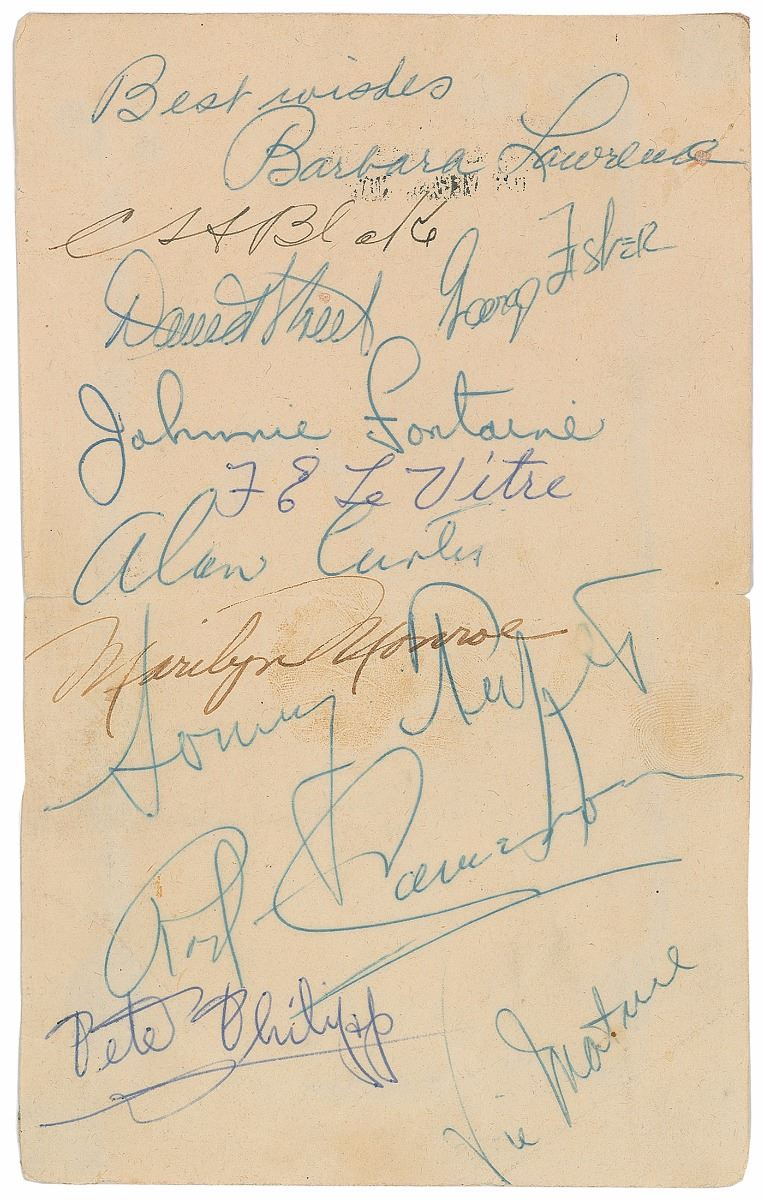 Best wishes
Barbara Lawrence
David Street George Fisher
Johnnie Fontaine
F E Le Vitre
Alan Curtis
Marilyn Monroe
Tommy
Rod Cameron
Pete Philipp
Vic Mature